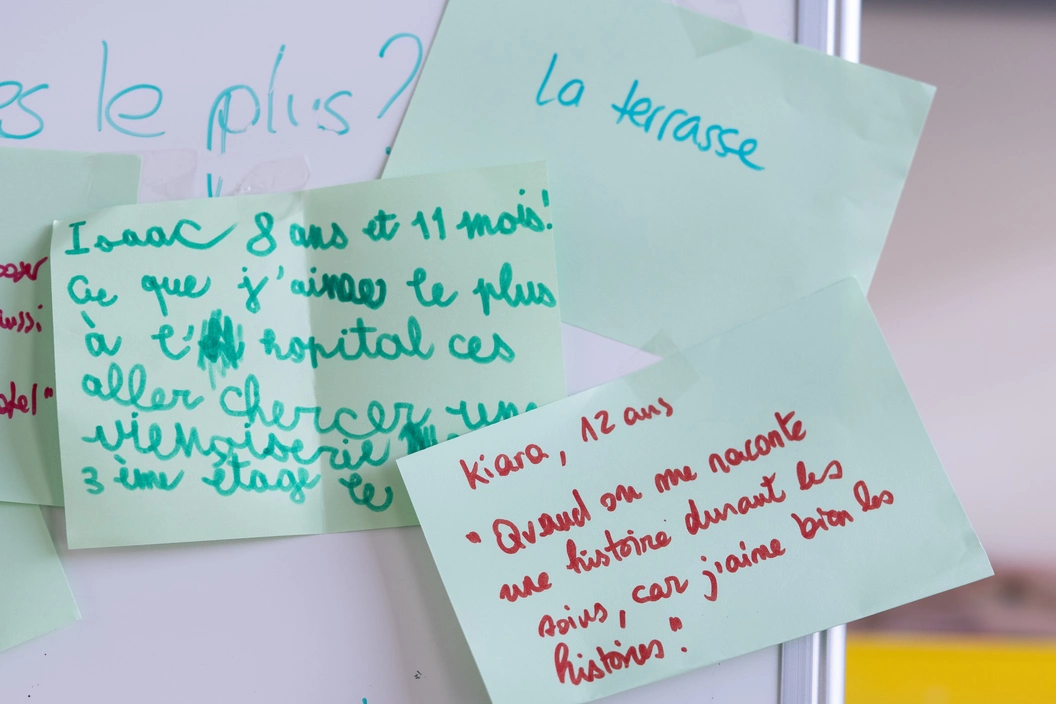 es le plus?
la terrasse
Isaac 8 ans et 11 mois!
Ce que j'aime le plus
à l' hopital ces
aller chercer une
vienoiserie
3 ème étage le
Kiara, 12 ans
"Quand on me raconte
une histoire durant les
soins, car j'aime bien les
histoires".
ussi